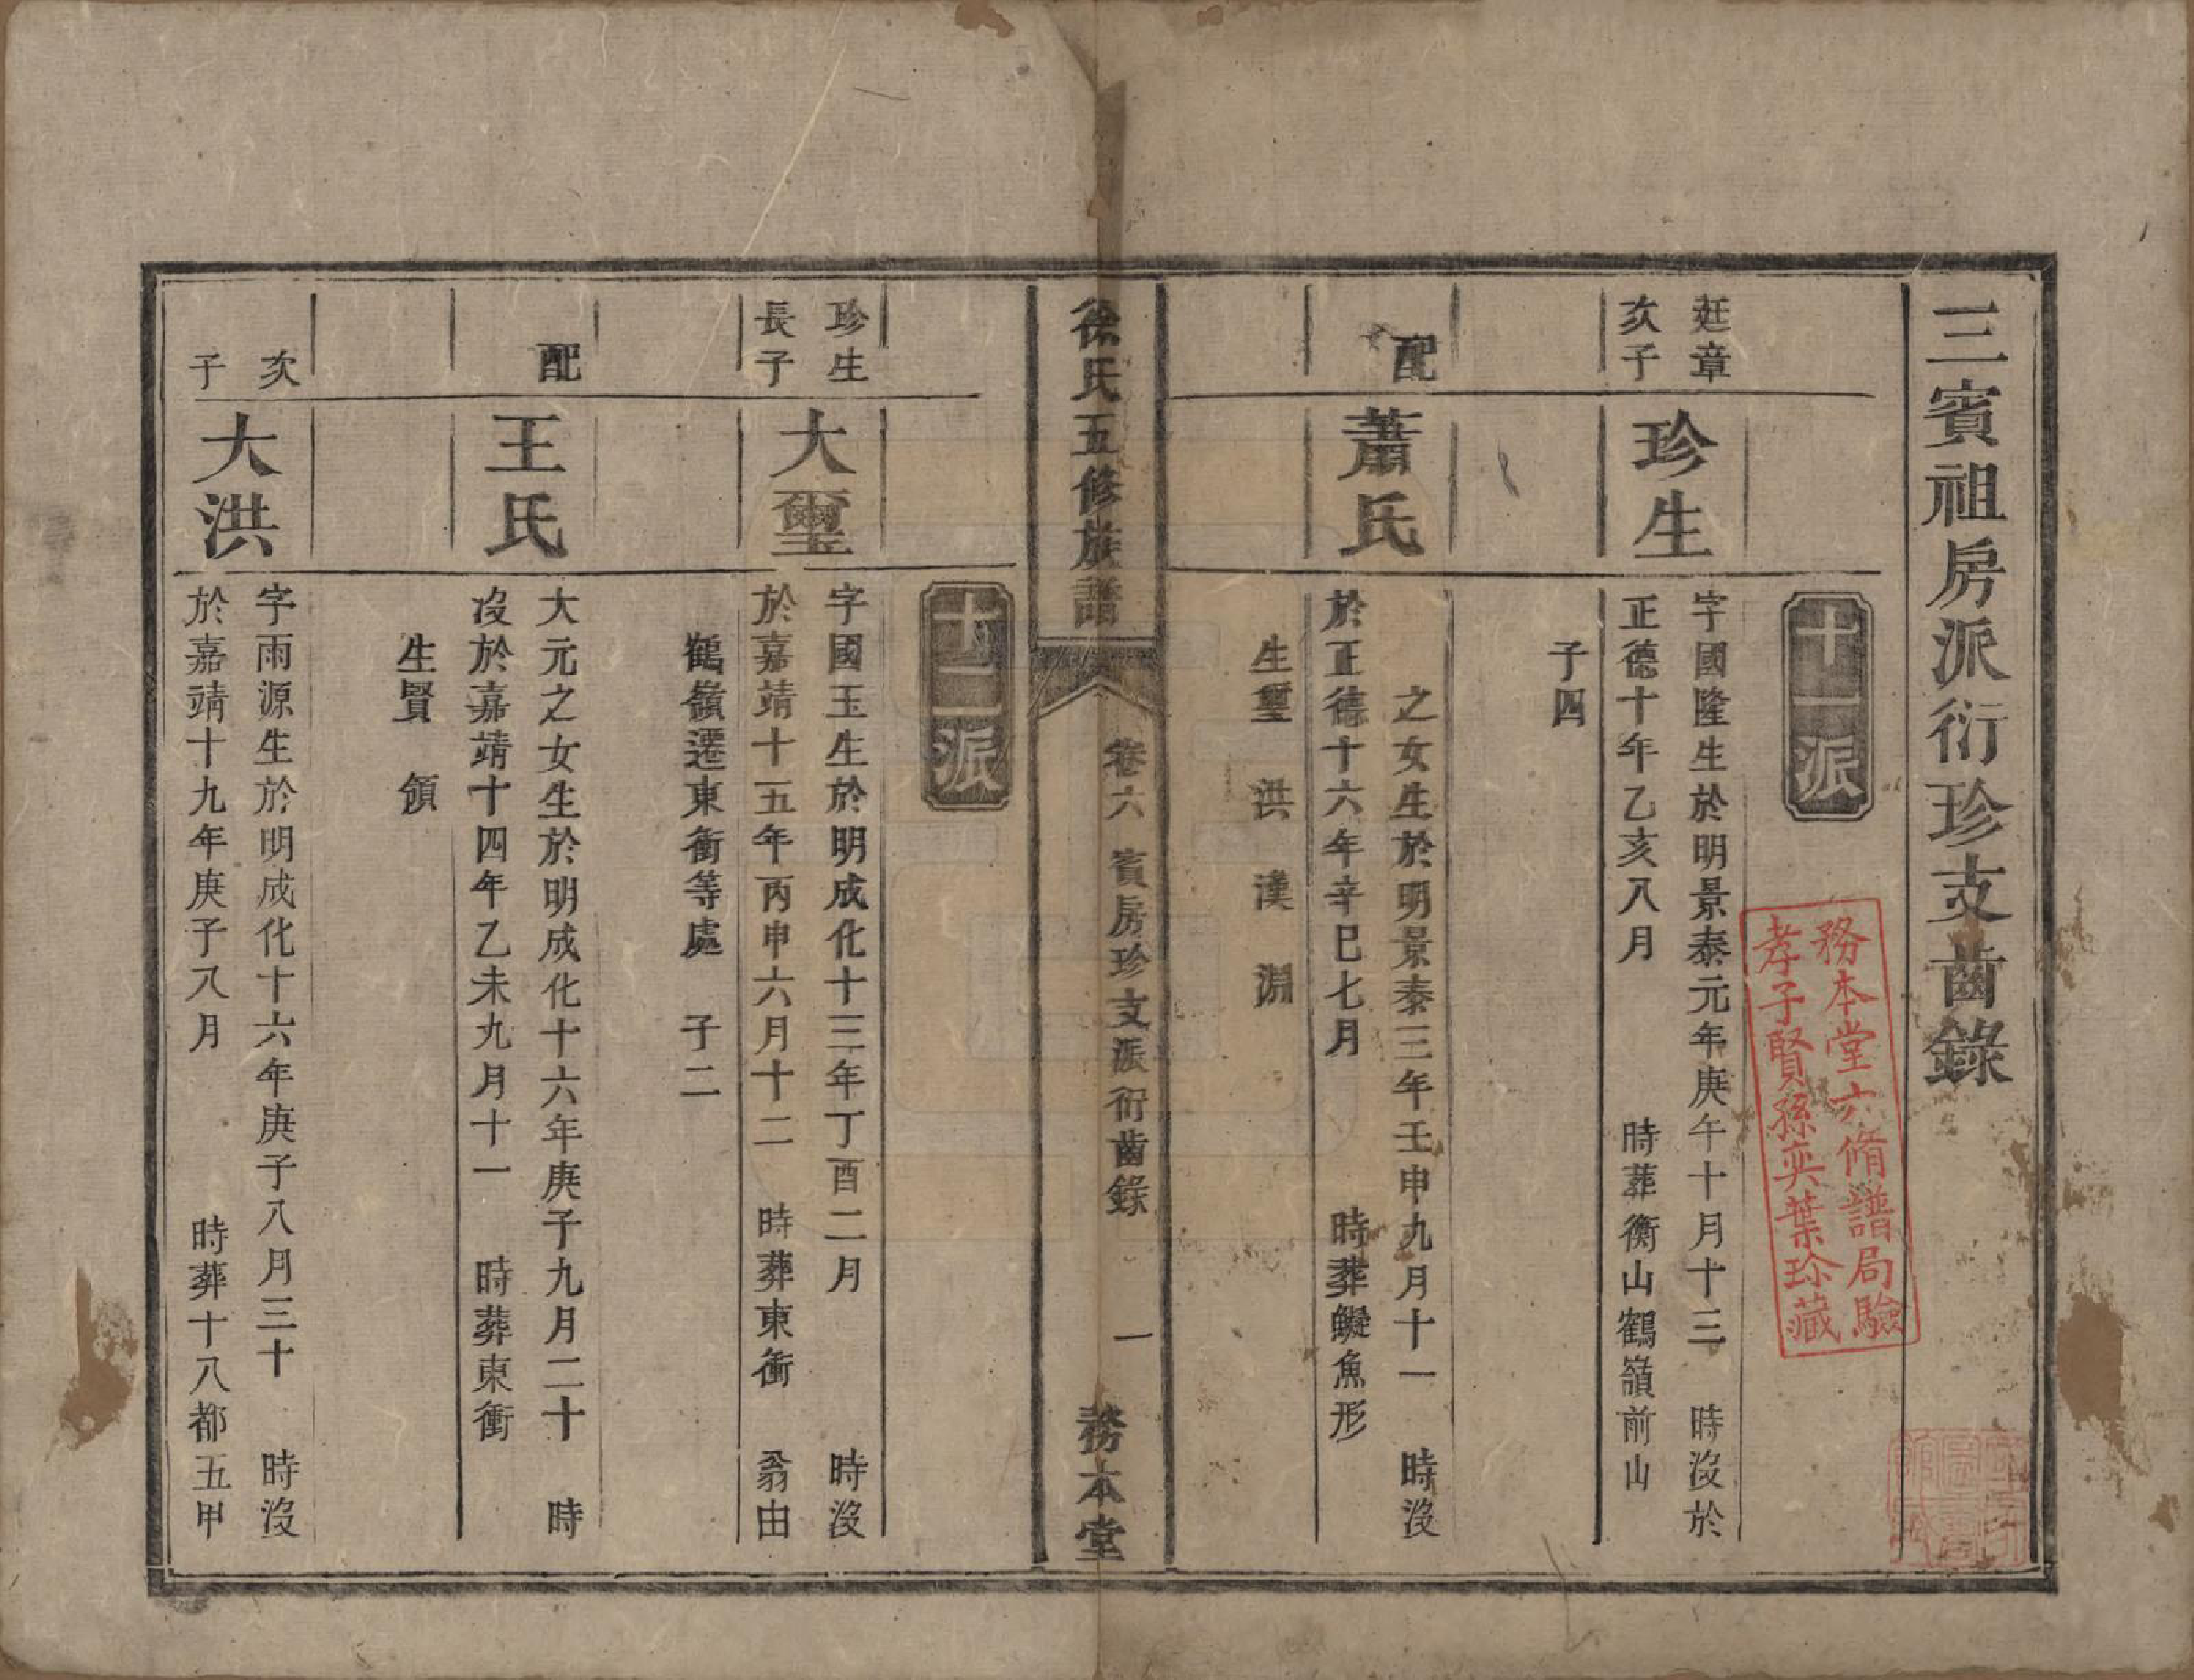 三賓祖房派衍珍支齒錄
務本堂六脩譜局驗
孝子賢孫奕葉珍藏
十一派
廷章
次子
珍生
字國隆生於明景泰元年庚午十月十三 時沒於
正德十年乙亥八月 時葬衡山鶴嶺前山
子四
配
蕭氏
之女生於明景泰三年壬申九月十一 時沒
於正德十六年辛巳七月 時葬鱖魚形
生璽 洪 漢 淵
徐氏五修族譜
卷六 賓房珍支派衍齒錄 一
務本堂
十二派
珍生
長子
大璽
字國玉生於明成化十三年丁酉二月 時沒
於嘉靖十五年丙申六月十二 時葬東衝 翁由
鶴嶺遷東衝等處 子二
配
王氏
大元之女生於明成化十六年庚子九月二十 時
沒於嘉靖十四年乙未九月十一 時葬東衝
生賢 領
次
子
大洪
字雨源生於明成化十六年庚子八月三十 時沒
於嘉靖十九年庚子八月 時葬十八都五甲